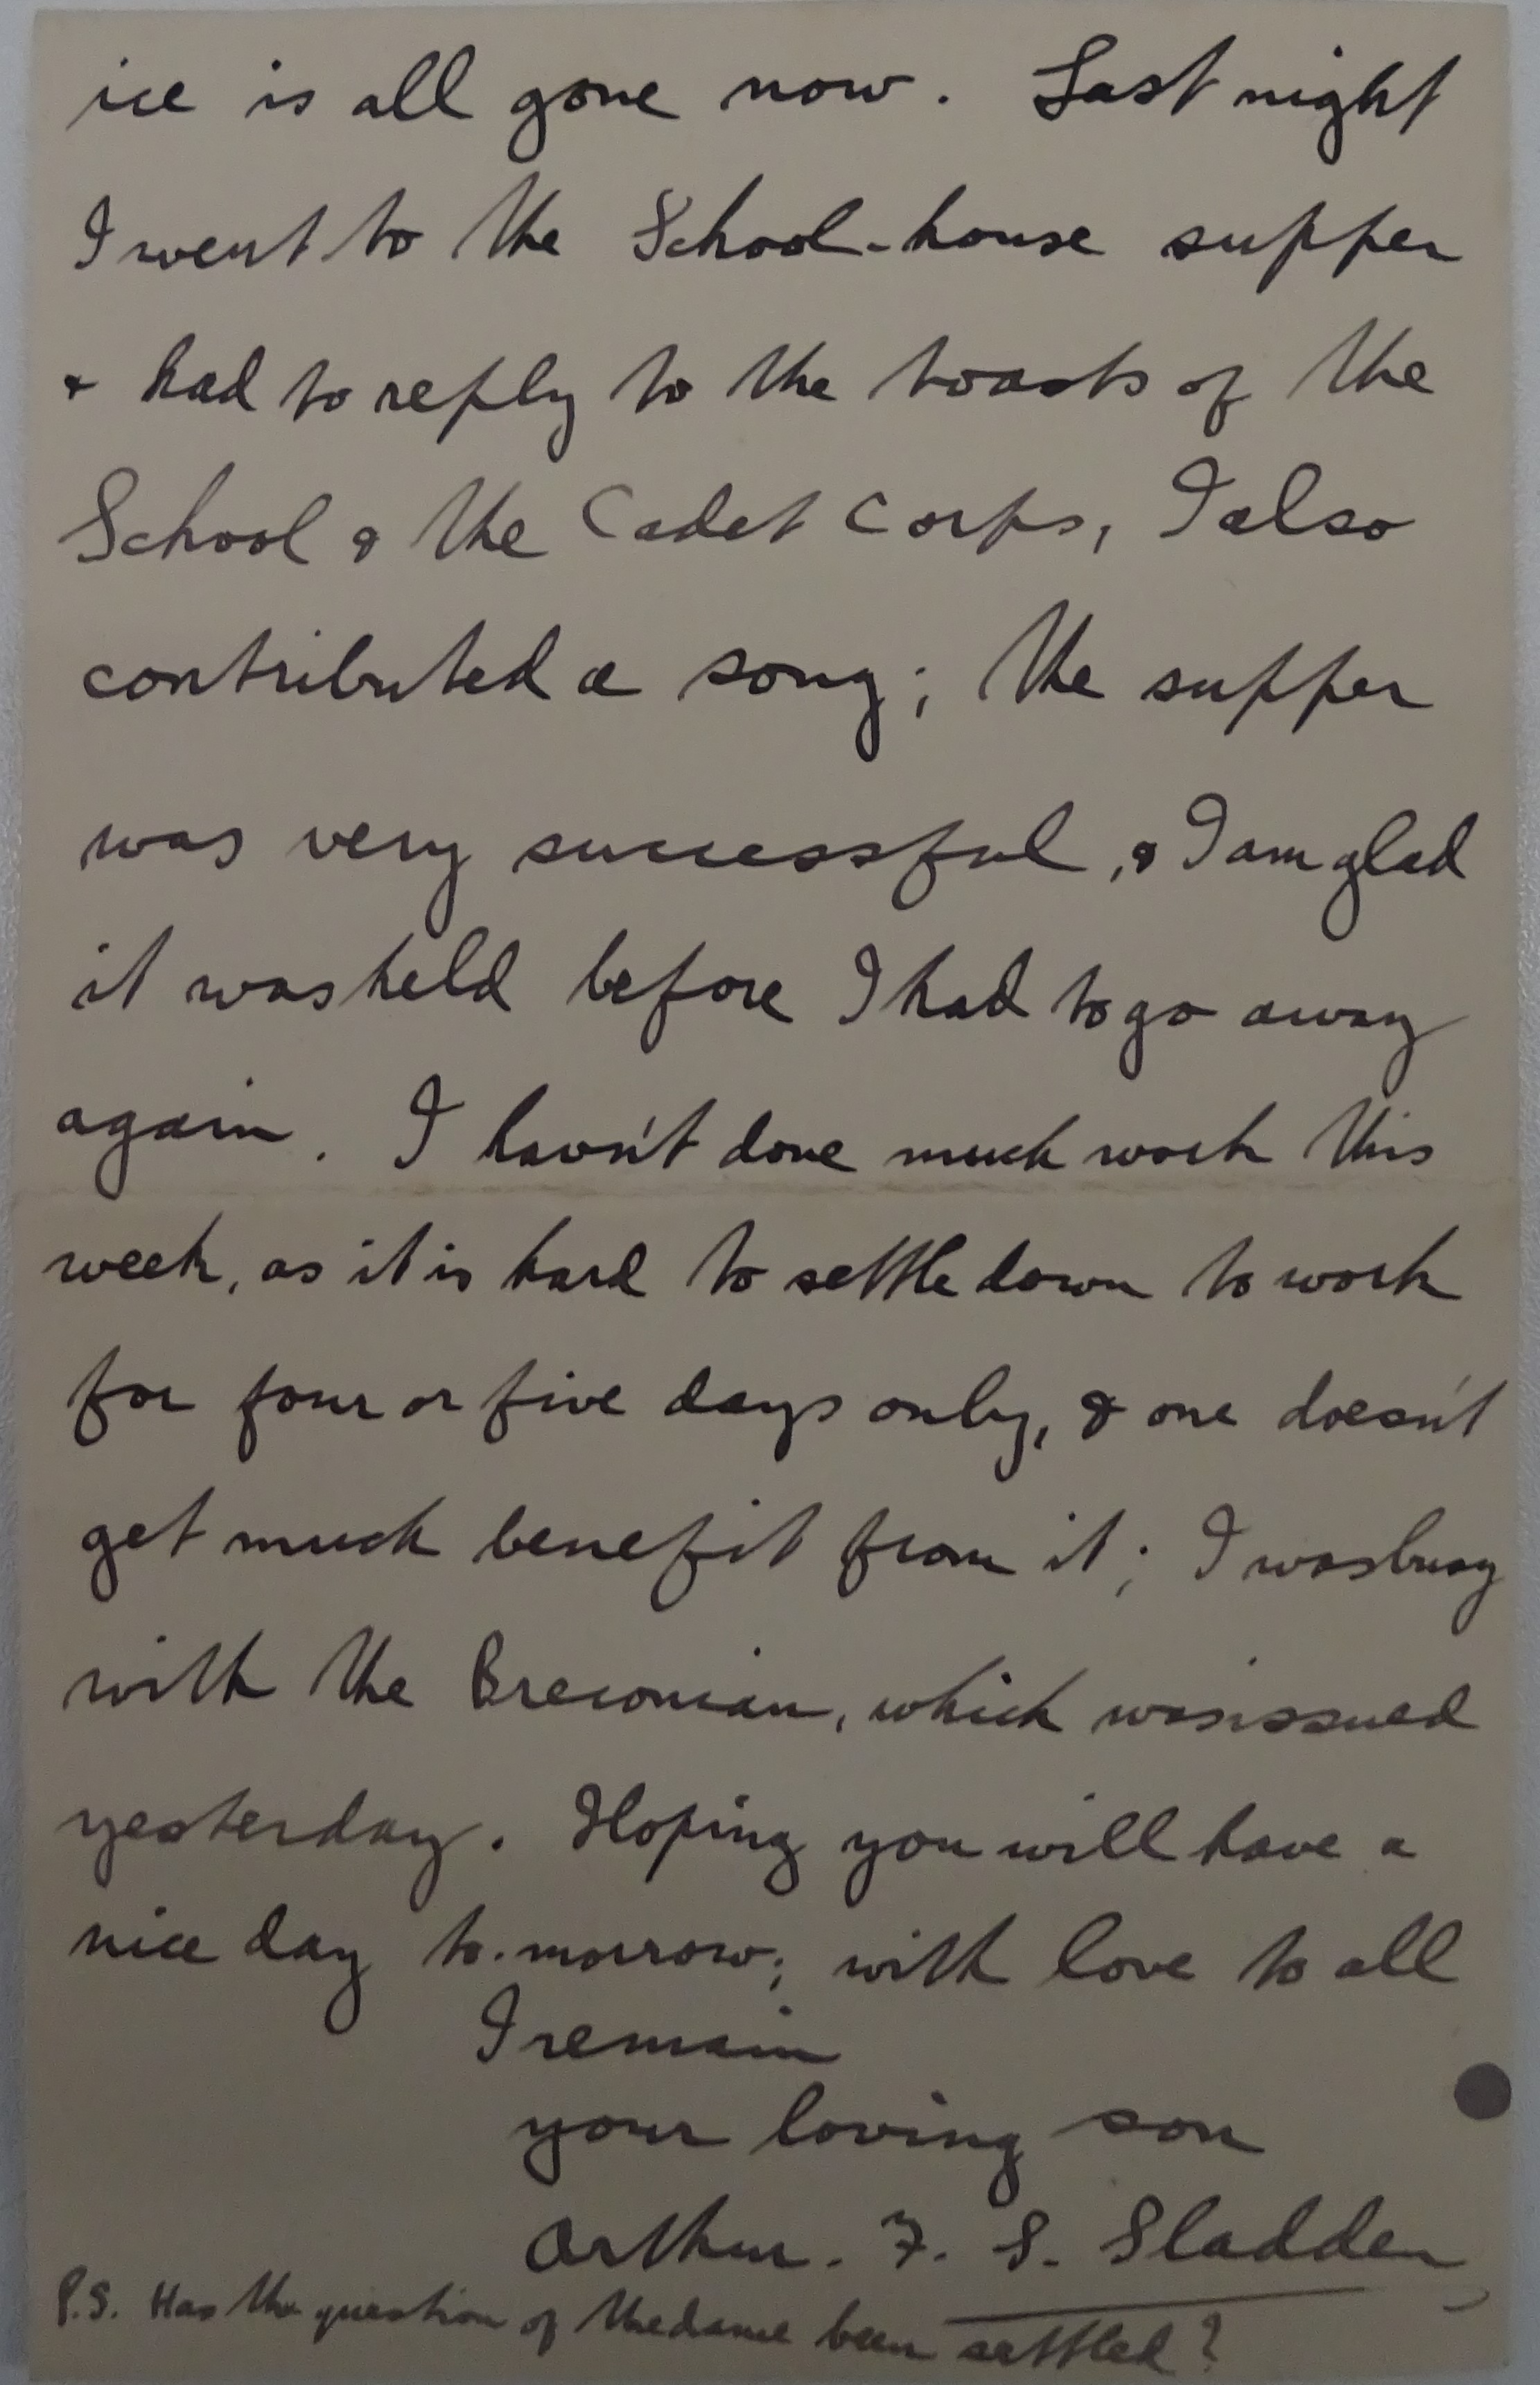 ice is all gone now. Last night
I went to the School-house supper
& had to reply to the toasts of the
School & the Cadet Corps, I also
contributed a song; the supper
was very successful, & I am glad
it was held before I had to go away
again. I havn't done much work this
week, as it is hard to settle down to work
for four or five days only, & one doesn't
get much benefit from it; I was busy
with the Breconian, which was issued
yesterday. Hoping you will have a
nice day to-morrow; with love to all
I remain
your loving son
Arthur. F. S. Sladden
P.S. Has the question of the dance been settled?